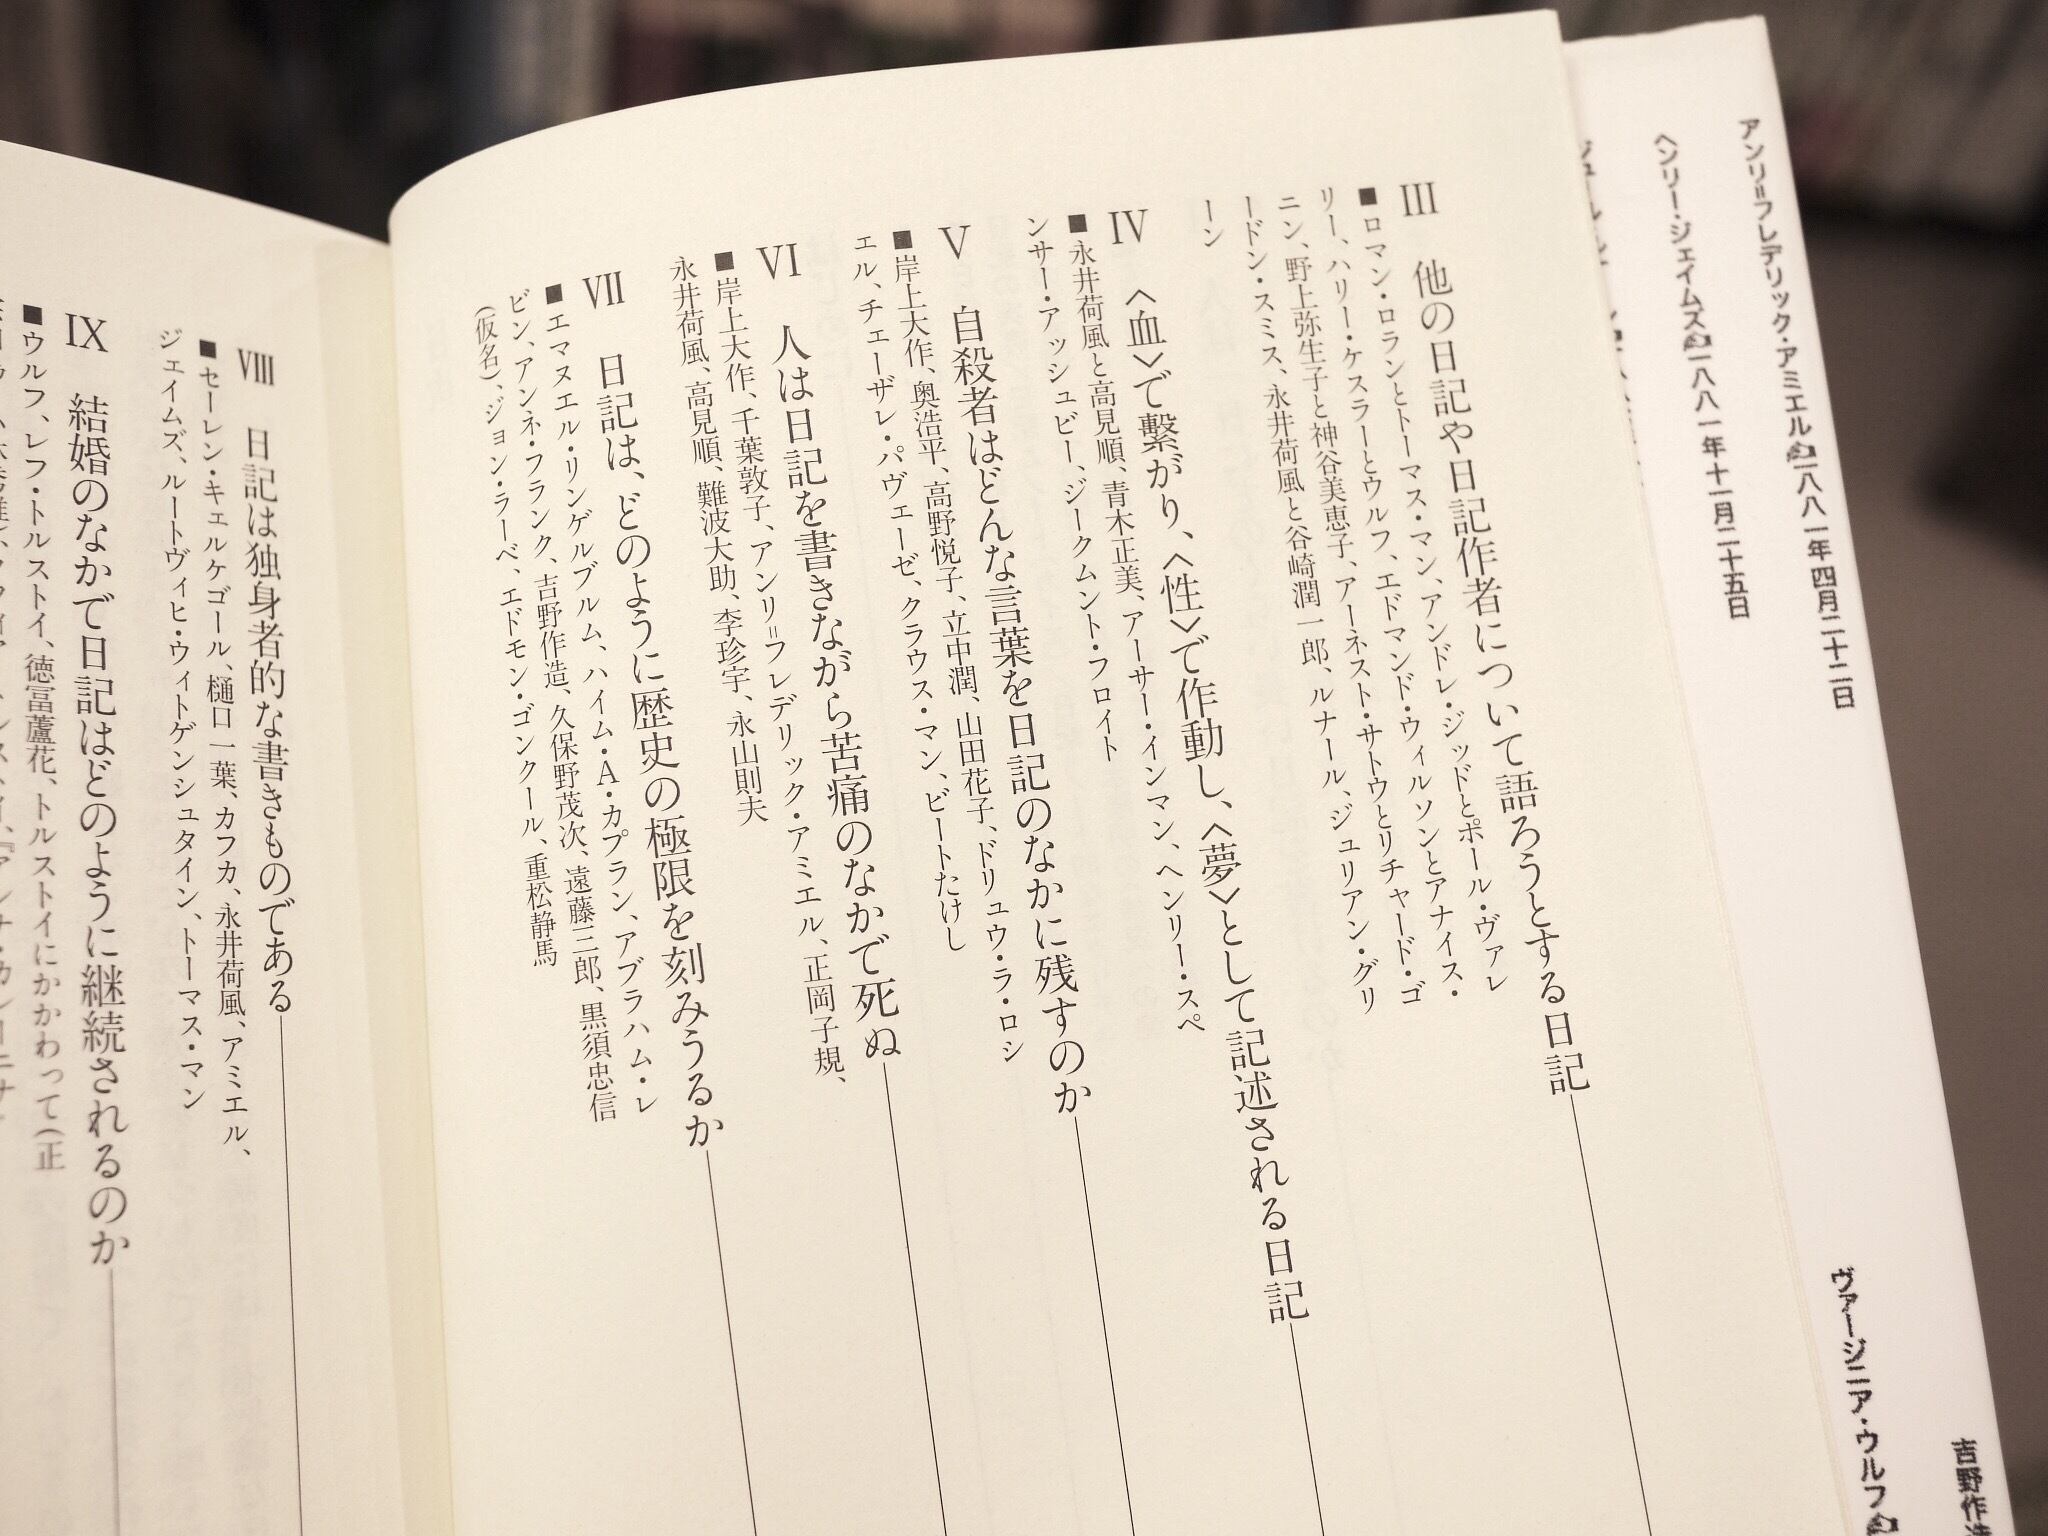 アンリ=フレデリック・アミエル 一八八一年四月二十二日
ヘンリー・ジェイムズ 一八八一年十一月二十五日
ヴァージニア・ウルフ
吉野作造
III 他の日記や日記作者について語ろうとする日記
■ロマン・ロランとトーマス・マン、アンドレ・ジッドとポール・ヴァレ
リー、ハリー・ケスラーとウルフ、エドマンド・ウィルソンとアナイス・
ニン、野上弥生子と神谷美恵子、アーネスト・サトウとリチャード・ゴ
ードン・スミス、永井荷風と谷崎潤一郎、ルナール、ジュリアン・グリ
ーン
IV 〈血〉で繫がり、〈性〉で作動し、〈夢〉として記述される日記
■永井荷風と高見順、青木正美、アーサー・インマン、ヘンリー・スペ
ンサー・アッシュビー、ジークムント・フロイト
V 自殺者はどんな言葉を日記のなかに残すのか
■岸上大作、奥浩平、高野悦子、立中潤、山田花子、ドリュウ・ラ・ロシ
エル、チェーザレ・パヴェーゼ、クラウス・マン、ビートたけし
VI 人は日記を書きながら苦痛のなかで死ぬ
■岸上大作、千葉敦子、アンリ=フレデリック・アミエル、正岡子規、
永井荷風、高見順、難波大助、李珍宇、永山則夫
VII 日記は、どのように歴史の極限を刻みうるか
■エマヌエル・リンゲルブルム、ハイム・A・カプラン、アブラハム・レ
ビン、アンネ・フランク、吉野作造、久保野茂次、遠藤三郎、黒須忠信
(仮名)、ジョン・ラーベ、エドモン・ゴンクール、重松静馬
VIII 日記は独身者的な書きものである
■セーレン・キェルケゴール、樋口一葉、カフカ、永井荷風、アミエル、
ジェイムズ、ルートヴィヒ・ウィトゲンシュタイン、トーマス・マン
IX 結婚のなかで日記はどのように継続されるのか
■ウルフ、レフ・トルストイ、徳冨蘆花、トルストイにかかわって(正